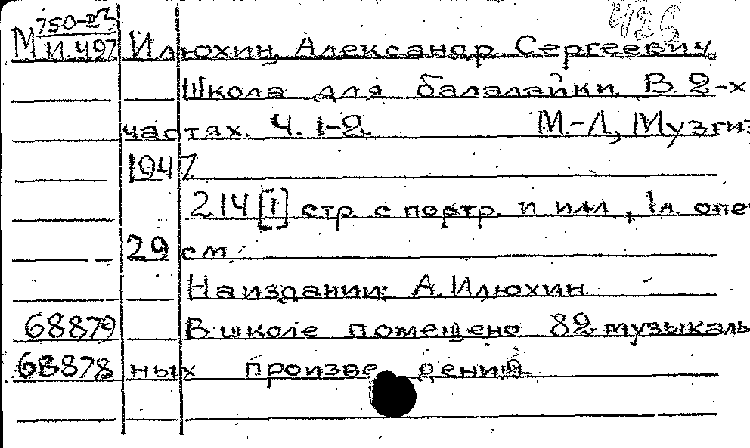 750-II
426
М
И.497 Илюхин, Александр Сергеевич
Школа для балалайки. В 2-х
частях. Ч. 1-2. М.-Л., Музгиз
1947
214 [1] стр. с портр. и илл., 1л. опе
29 см.
На издании: А. Илюхин
68879 В школе помещено 82 музыкаль
68878 ных произве дений